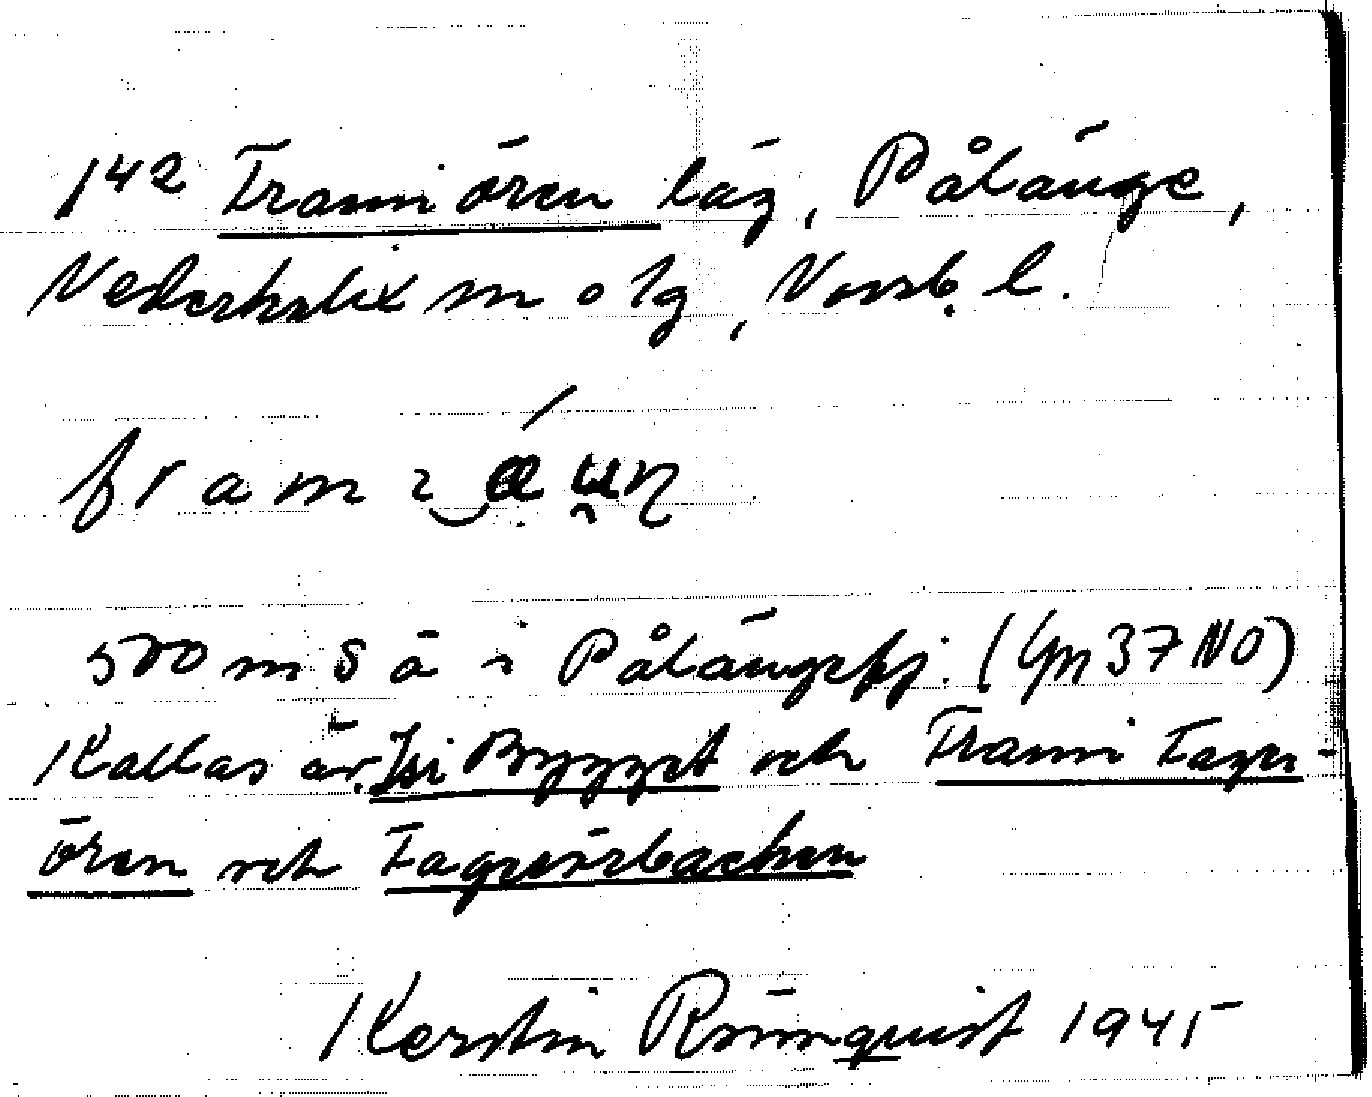 142 Frami ören läg, Pålänge,
Nederkalix sn o lg, Norrb. l.
fram
500 m S ö i Pålängefj. (Gn 37 NO)
Kallas äv. Isi Brygget och Frami Fager-
ören och Fagerörbacken
Kerstin Rönnquist 1945